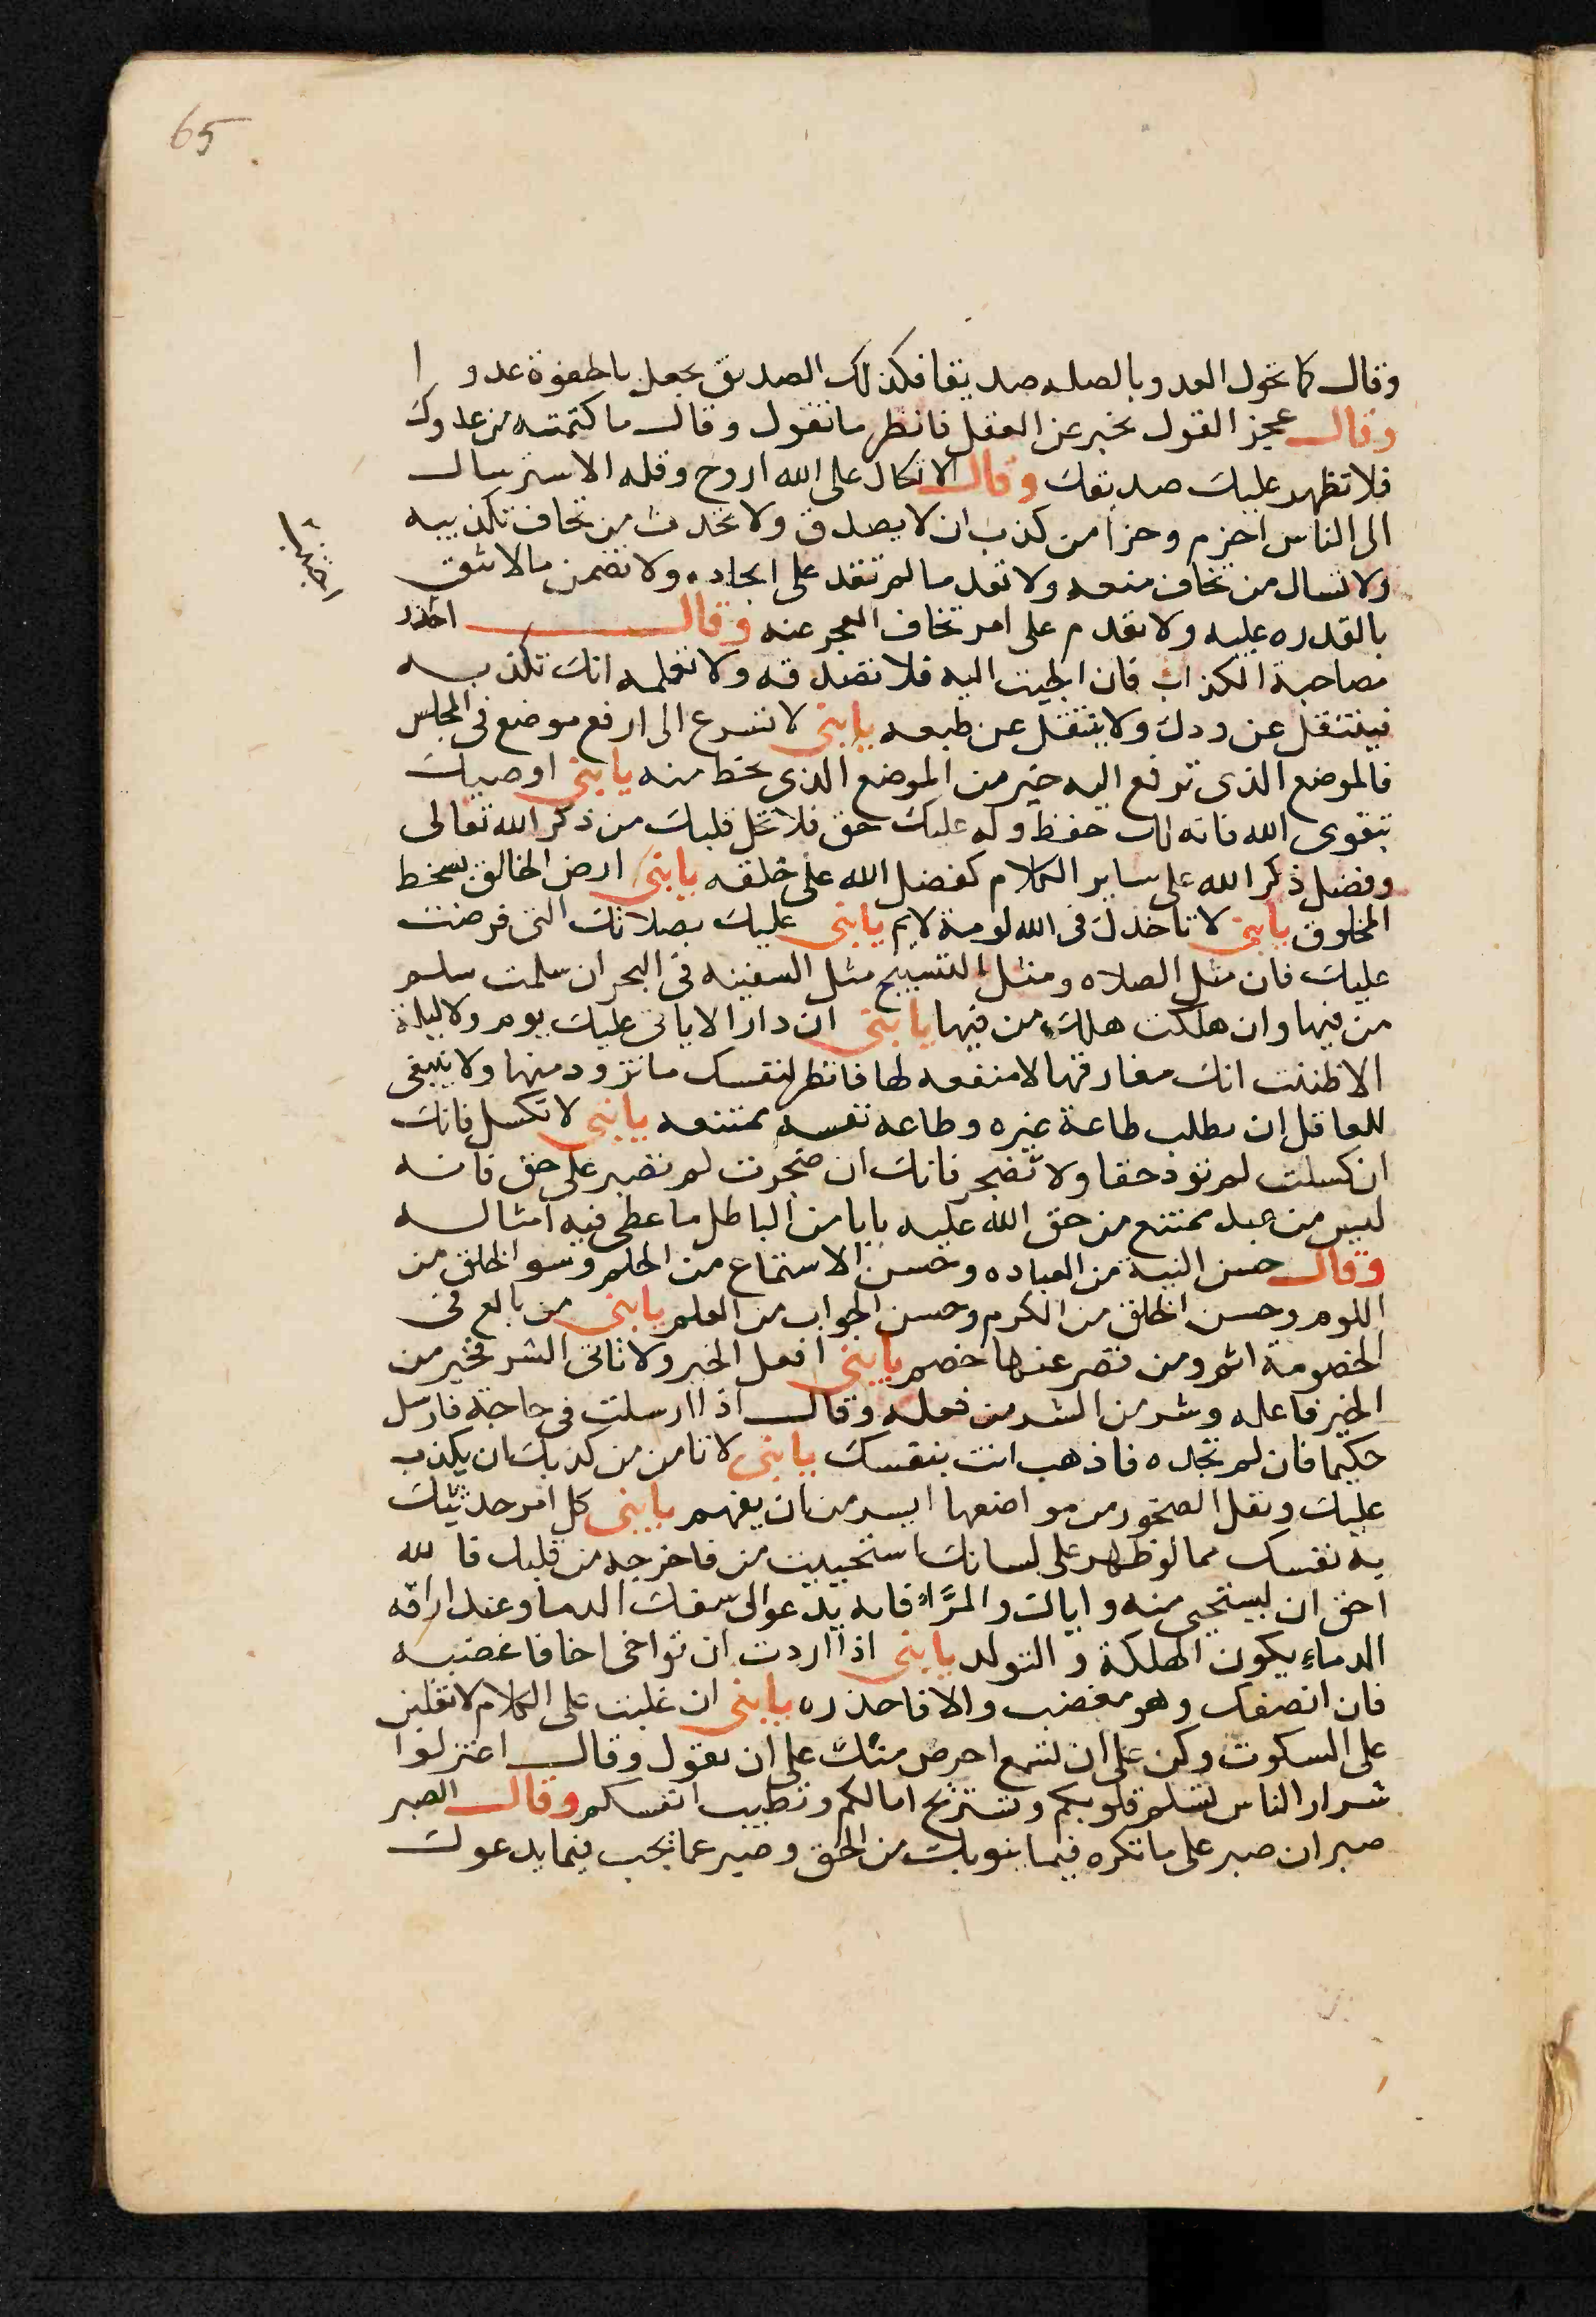 65
وقال كما تحول العدو بالصله صديقا فكذلك الصديق يجعل بالجفوة عدوا
وقال عجز القول يخبر عن العقل فانظر ما تقول وقال ما كتمته من عدوك
فلا تظهر عليك صديقك وقال الاتكال على الله اروح وقله الاسترسال
الى الناس احزم وجزا من كذب ان لا يصدق ولا تحدث من تخاف تكذيبه
ولا تسال من تخاف منعه ولا تعد ما لم تقد على ايجاده ولا تضمن مالا تثق
بالقدره عليه ولا تقدم على امر تخاف العجز عنه وقال احذر
مصاحبة الكذاب فان الجيت اليه فلا تصدقه ولا تعلمه انك تكذبه
فينتقل عن ودك ولا ينتقل عن طبعه يا بنى لا تسرع الى ارفع موضع فى المجلس
فالموضع الذى ترفع اليه خير من الموضع الذى تحط منه يا بنى اوصيك
بتقوى الله فانه لك حفظ وله عليك حق فلا تخل قلبك من ذكر الله تعالى
وفضل ذكر الله على ساير الكلام كفضل الله على خلقه يا بنى ارض الخالق بسخط
المخلوق يا بنى لا تاخذك فى الله لومة لايم يا بنى عليك بصلاتك التى فرضت
عليك فان مثل الصلاه ومثل التسبيح مثل السفينه فى البحر ان سلمت سلم
من فيها وان هلكت هلك من فيها يا بنى ان دار الا ياتى عليك يوم ولا ليلة
الا ظننت انك مفارقها لا منفعه لها فانظر لنفسك ما تزود منها ولا ينبغى
للعاقل ان يطلب طاعة غيره وطاعه نفسه ممتنعه يا بنى لا تكسل فانك
ان كسلت لم تود حقا ولا تضجر فانك ان ضجرت لم تصبر على حق فانه
ليس من عبد يمتنع من حق الله عليه بابا من الباطل ما عطى فيه امثاله
وقال حسن النية من العباده وحسن الاستماع من الحلم وسو الخلق من
اللوم وحسن الخلق من الكرم وحسن الجواب من العلم يا بنى من بالغ فى
الخصومة اثم ومن قصر عنها خصم يا بنى افعل الخير ولا تاتى الشر فخير من
الخير فاعله وشر من الشر من فعله وقال اذا ارسلت فى حاجة فارسل
حكيما فان لم تجده فاذهب انت بنفسك يا بنى لا تامن من كذبك ان يكذب
عليك ونقل الصخور من مواضعها ايسر من ان يفهم يا بنى كل امر حدثتك
به نفسك مما لو ظهر على لسانك استحييت من فاخرجه من قلبك فالله
احق ان يستحيى منه واياك والمرآء فانه يدعوا الى سفك الدما وعند اراقه
الدماء يكون الهلكة و التولد يا بنى اذا اردت ان تواخى اخا فاغضبه
فان انصفك وهو مغضب والا فاحذره يا بنى ان غلبت على الكلام لا تغلبن
على السكوت وكن على ان تسمع احرص منك على ان تقول وقال اعتزلوا
شرار الناس تسلم قلوبكم وتستريح امالكم وتطيب انفسكم وقال الصبر
صبران صبر على ما تكره فيما ينوبك من الحق وصبر عما تحب فيما يدعوك